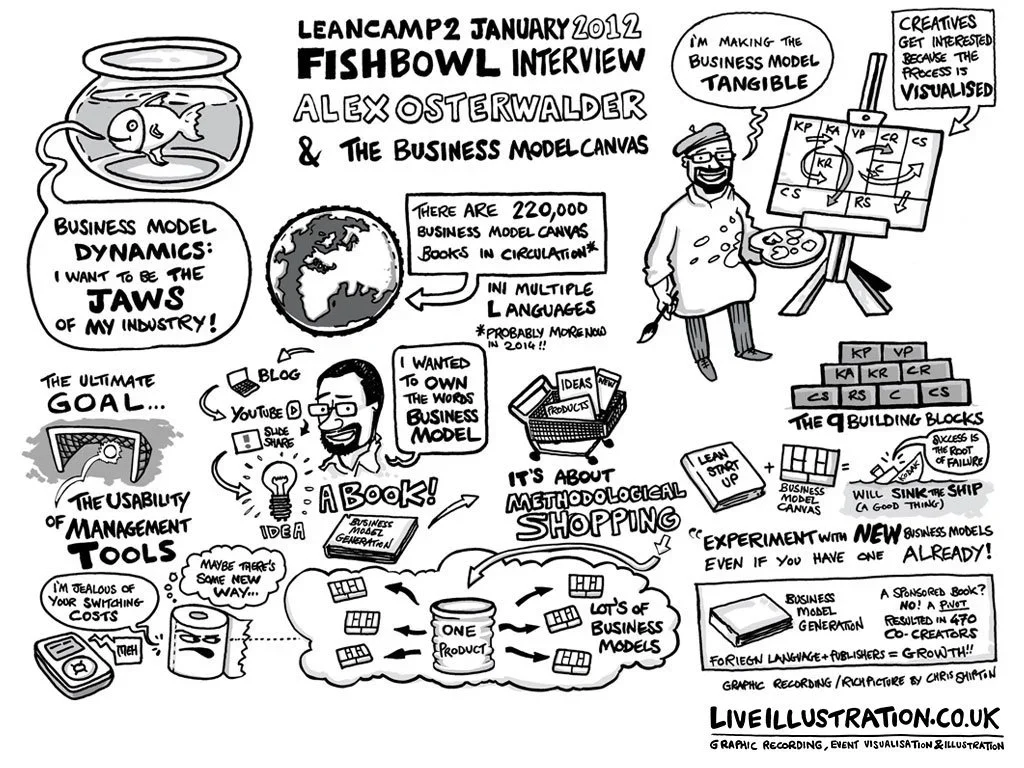 LEANCAMP2 JANUARY 2012
FISHBOWL INTERVIEW
ALEX OSTERWALDER
& THE BUSINESS MODEL CANVAS
BUSINESS MODEL
DYNAMICS:
I WANT TO BE THE
JAWS
OF MY INDUSTRY!
THERE ARE 220,000
BUSINESS MODEL CANVAS
BOOKS IN CIRCULATION*
IN MULTIPLE
LANGUAGES
*PROBABLY MORE NOW
IN 2014!!
I'M MAKING THE
BUSINESS MODEL
TANGIBLE
CREATIVES
GET INTERESTED
BECAUSE THE
PROCESS IS
VISUALISED
KP KA VP CR CS
KR C
CS RS
THE ULTIMATE
GOAL...
THE USABILITY
OF MANAGEMENT
TOOLS
BLOG
YOUTUBE
SLIDE
SHARE
IDEA
I WANTED
TO OWN
THE WORDS
BUSINESS
MODEL
A BOOK!
BUSINESS
MODEL
GENERATION
IDEAS
NEW
PRODUCTS
IT'S ABOUT
METHODOLOGICAL
SHOPPING
KP VP
KA KR CR
CS RS C CS
THE 9 BUILDING BLOCKS
LEAN
START
UP
+
BUSINESS
MODEL
CANVAS
=
KODAK
SUCCESS IS
THE ROOT
OF FAILURE
WILL SINK THE SHIP
(A GOOD THING)
"EXPERIMENT WITH NEW BUSINESS MODELS
EVEN IF YOU HAVE ONE ALREADY!
I'M JEALOUS OF
YOUR SWITCHING
COSTS
MEH
MAYBE THERE'S
SOME NEW
WAY...
ONE
PRODUCT
LOT'S OF
BUSINESS
MODELS
BUSINESS
MODEL
GENERATION
A SPONSORED BOOK?
NO! A PIVOT
RESULTED IN 470
CO-CREATORS
FORIEGN LANGUAGE + PUBLISHERS = GROWTH!!
GRAPHIC RECORDING / RICH PICTURE BY CHRIS SHIPTON
LIVEILLUSTRATION.CO.UK
GRAPHIC RECORDING, EVENT VISUALISATION & ILLUSTRATION